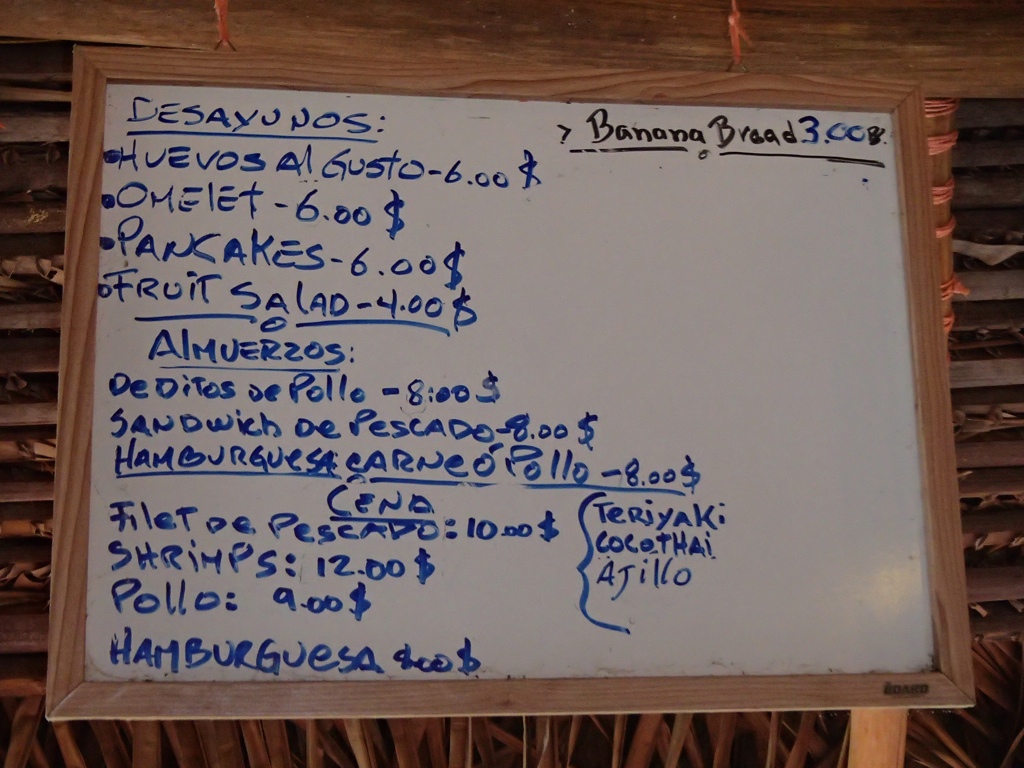 DESAYUNOS:
> Banana Bread 3.00 B.
•HUEVOS Al GUSTO-6.00 $
•OMElEt - 6.00 $
•PANCAKES-6.00$
•FRUIT SALAD-4.00$
AlMUERZOS:
DeDitos De Pollo - 8:00 $
SANDwich De PESCADO-8.00 $
HAMBURGUESA:CARNE Ó Pollo -8.00$
CENA
FileT De PESCADO:10.00 $
TERiYAKi
SHRiMPS: 12.00 $
COCOTHAi
Pollo: 9.00 $
AJillO
HAMBURGUeSA 8.00 $
BOARD